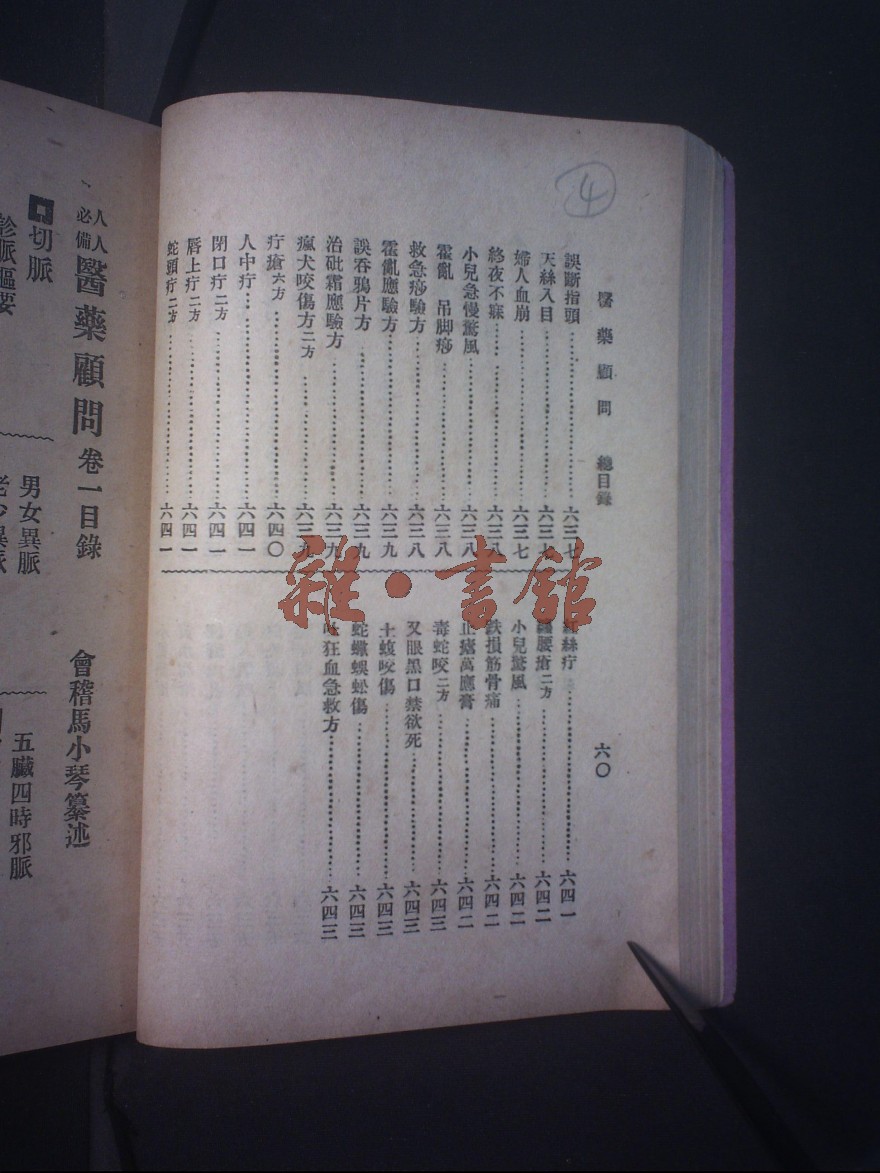 4
醫藥顧問 總目錄 六〇
誤斷指頭 六三七
天絲入目 六三七
婦人血崩 六三七
終夜不寐 六三八
小兒急慢驚風 六三八
霍亂 吊脚痧 六三八
救急痧驗方 六三八
霍亂應驗方 六三九
誤吞鴉片方 六三九
治砒霜應驗方 六三九
瘋犬咬傷方二方 六三九
疔瘡六方 六四〇
人中疔 六四一
閉口疔二方 六四一
唇上疔二方 六四一
蛇頭疔二方 六四一
紅絲疔 六四一
纏腰瘡二方 六四二
小兒驚風 六四二
跌損筋骨痛 六四二
止瘡萬應膏 六四二
毒蛇咬二方 六四三
叉眼黑口禁欲死 六四三
土蝮咬傷 六四三
蛇蠍蜈蚣傷 六四三
吐狂血急救方 六四三
雜·書館
人人必備 醫藥顧問 卷一目錄 會稽馬小琴纂述
切脈
男女異脈
五臟四時邪脈
診脈樞要
老少異脈